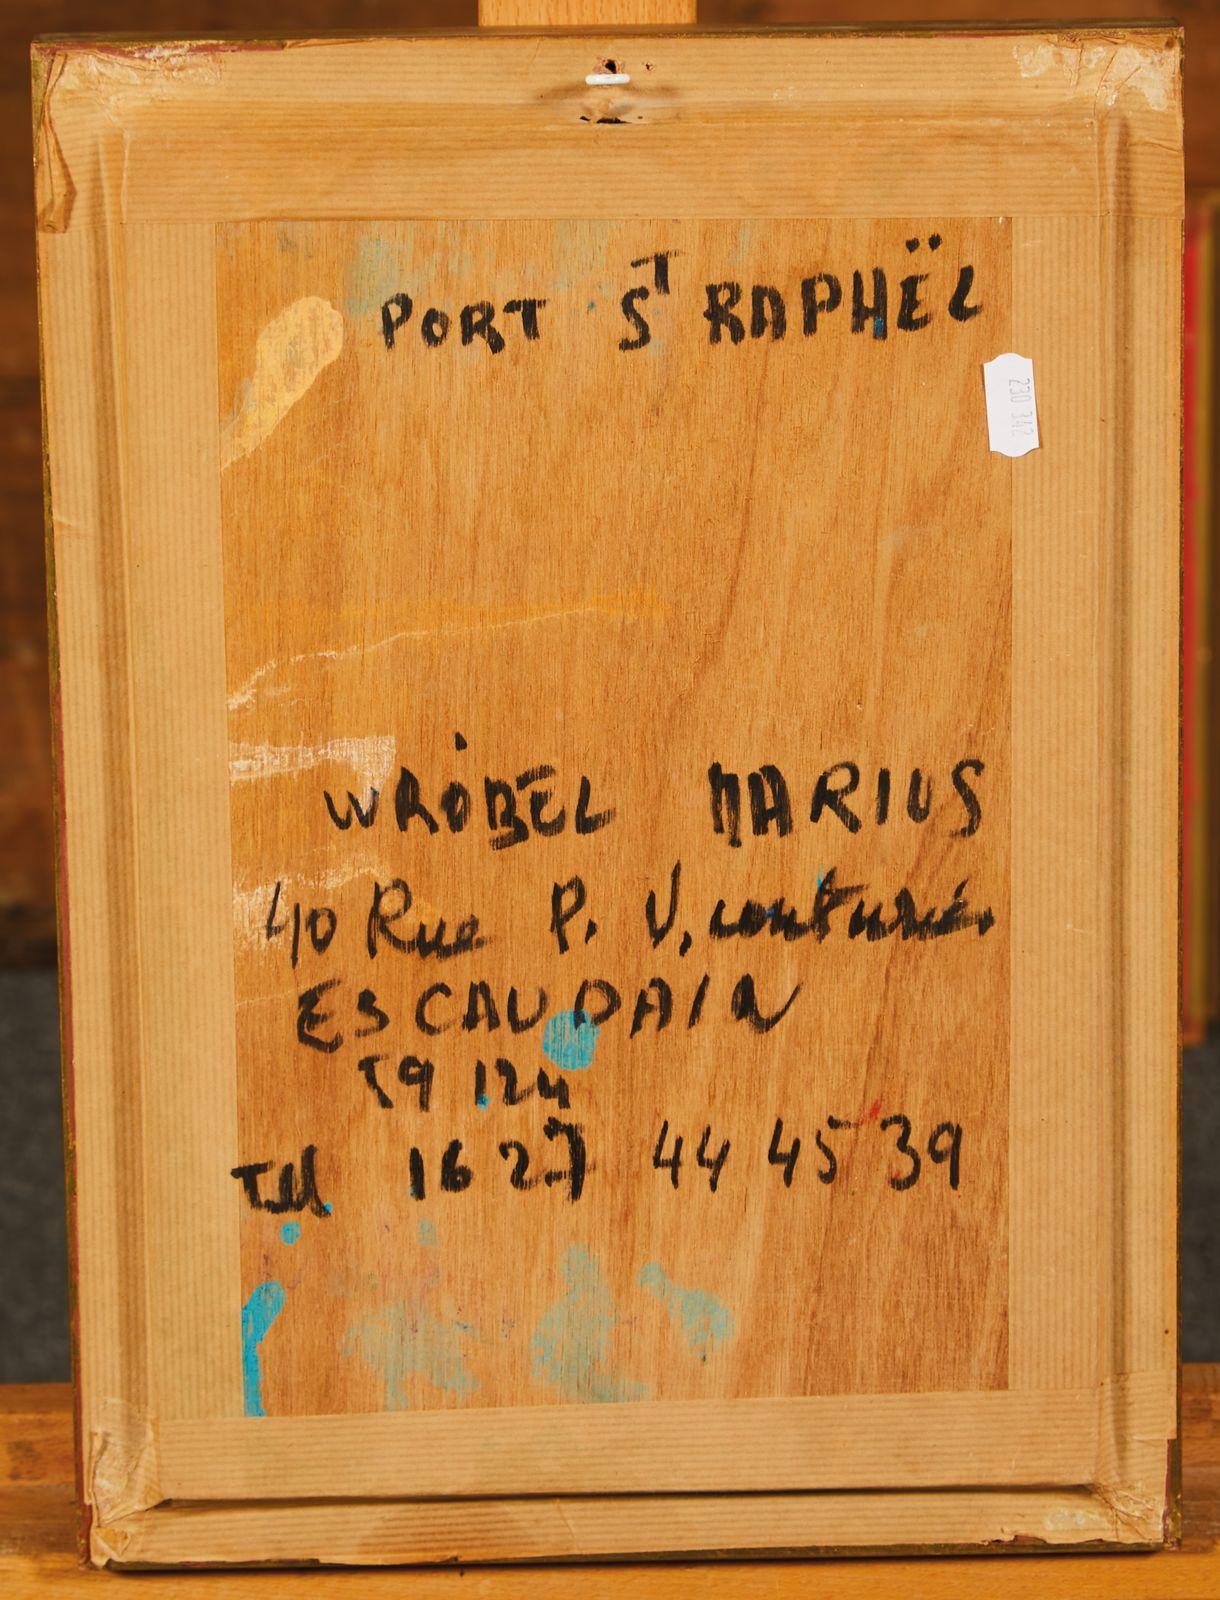 PORT S^T RAPHËL
230 342
WRÓBEL MARIUS
40 Rue P. V. couturier
ESCAUDAIN
59 124
Tel 16 27 44 45 39